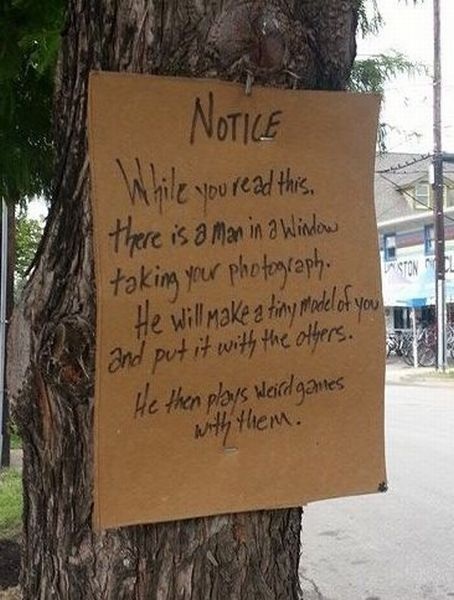 NOTICE
While you read this,
there is a Man in a Window
taking your photograph.
He will Make a tiny model of you
and put it with the others.
He then plays weird games
with them.